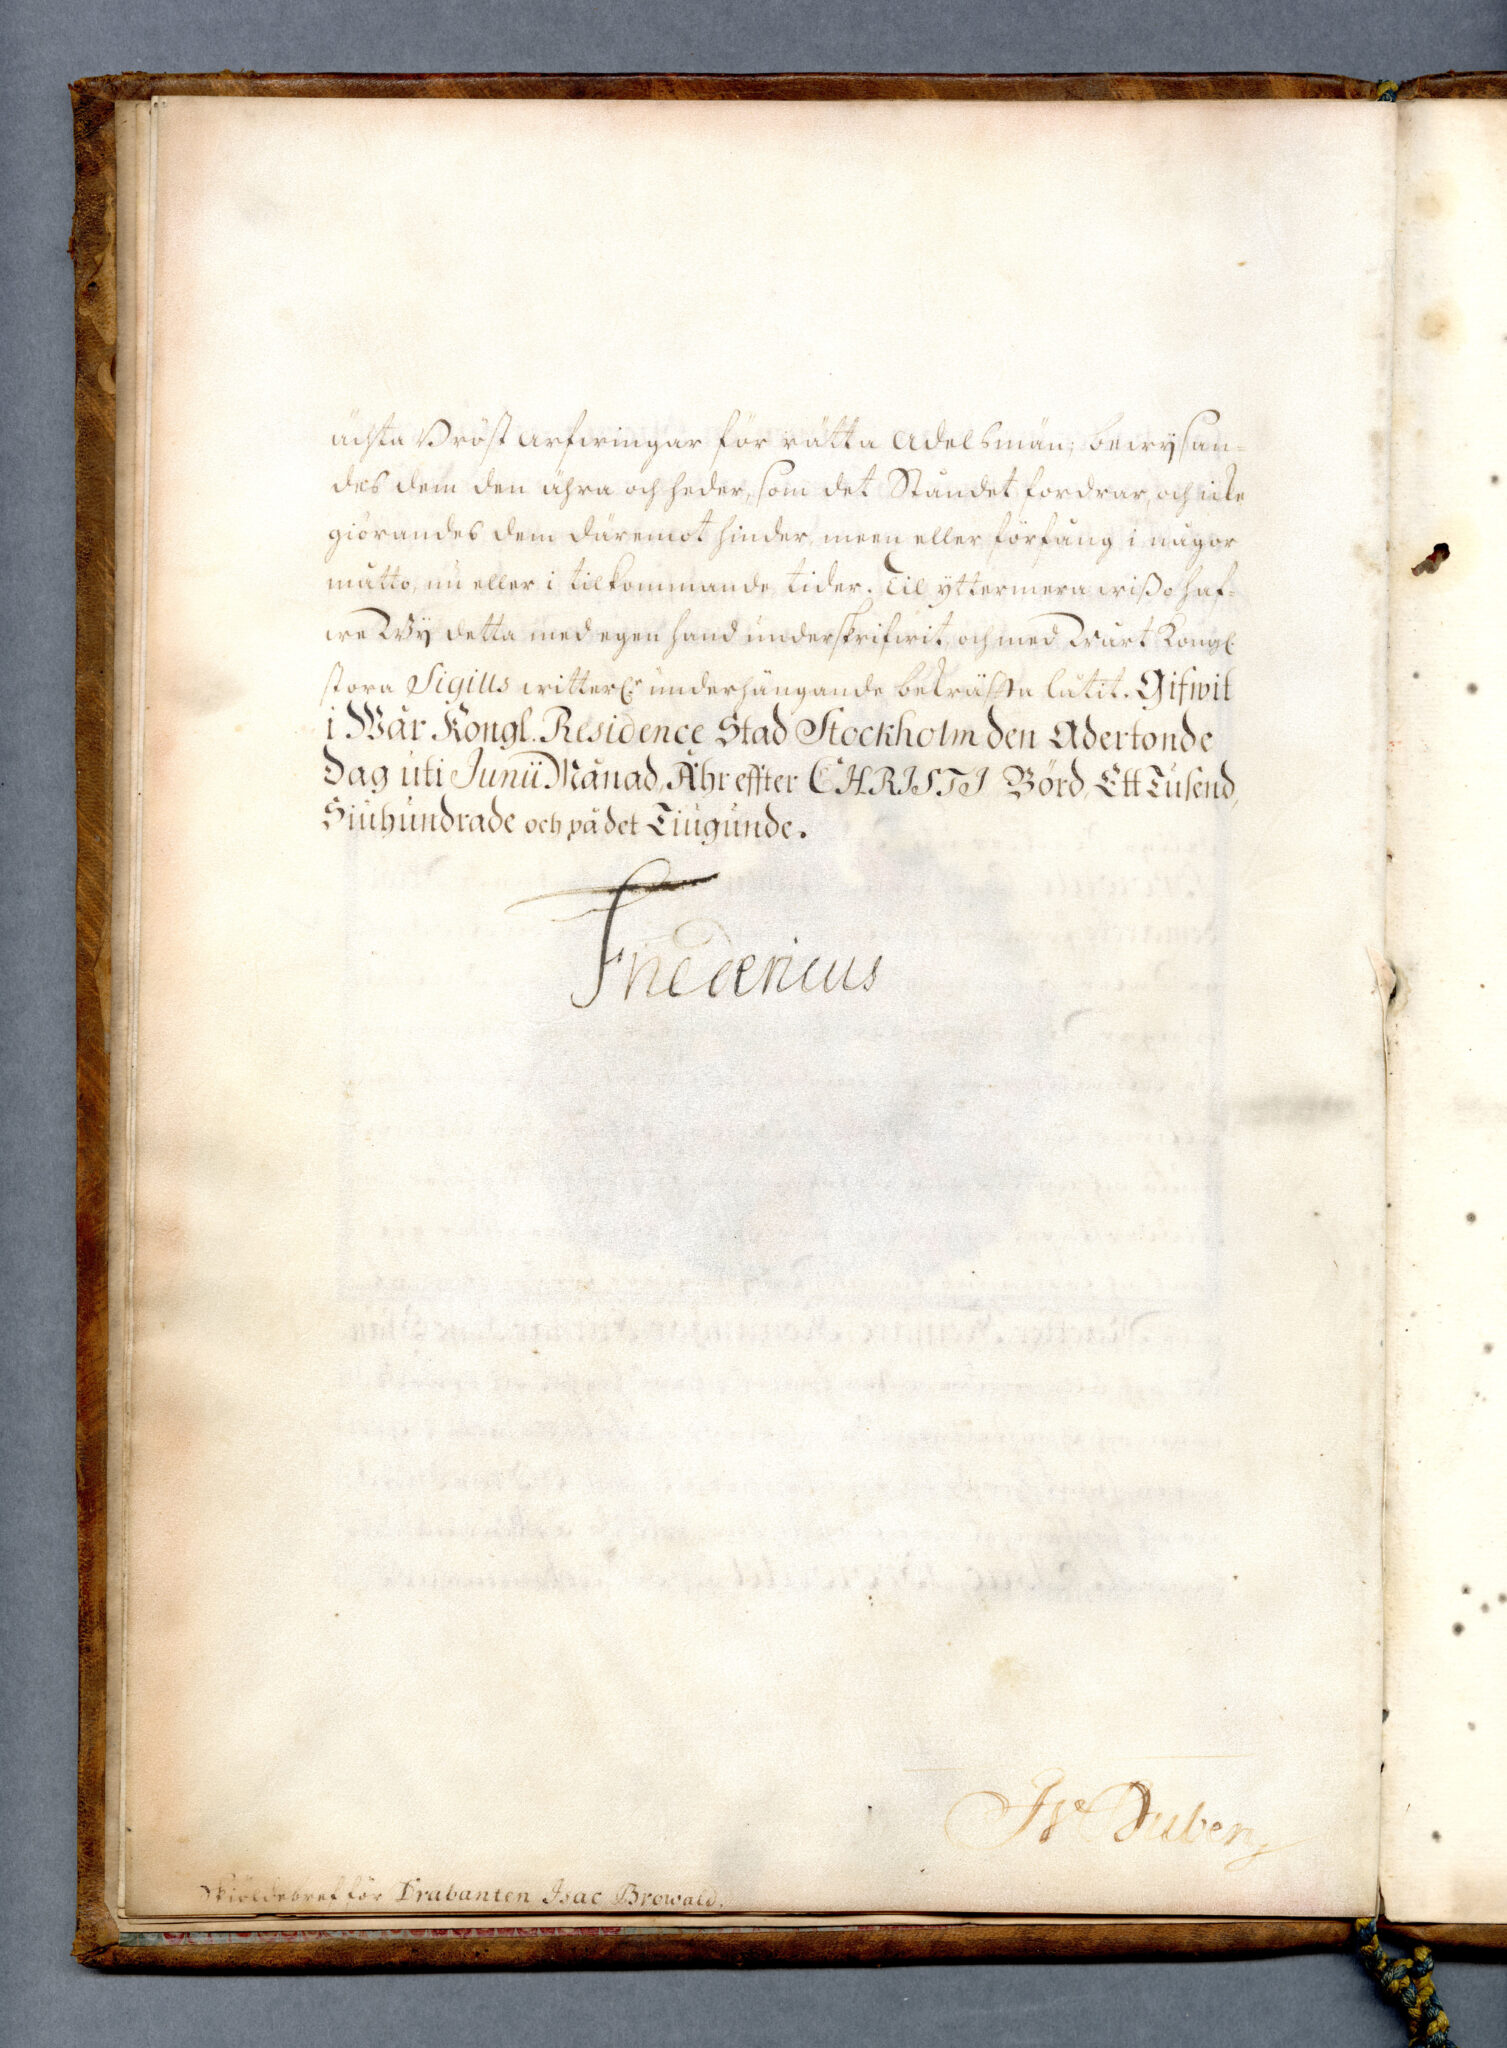 ächta Bröst arfwingar för rätta Adelsmän; bewysan=
des dem den ähra och heder, som det Ståndet fordrar, och icke
giörandes dem däremot hinder, meen eller förfång i någor
måtto, nu eller i tilkommande tider. Til yttermera wißo haf=
we Wy detta med egen hand underskrifwit, och med Wårt Kongl.
stora Sigills witterl: underhängande bekräffta låtit. Gifwit
i Wår Kongl. Residence Stad Stockholm den Adertonde
Dag uti Junii Månad, Åhr effter CHRISTI Börd, Ett Tusend,
Siuhundrade och på det Tiugunde.
Fridericus
Js. Duben
Skiöldebref för Drabanten Isac Browald.